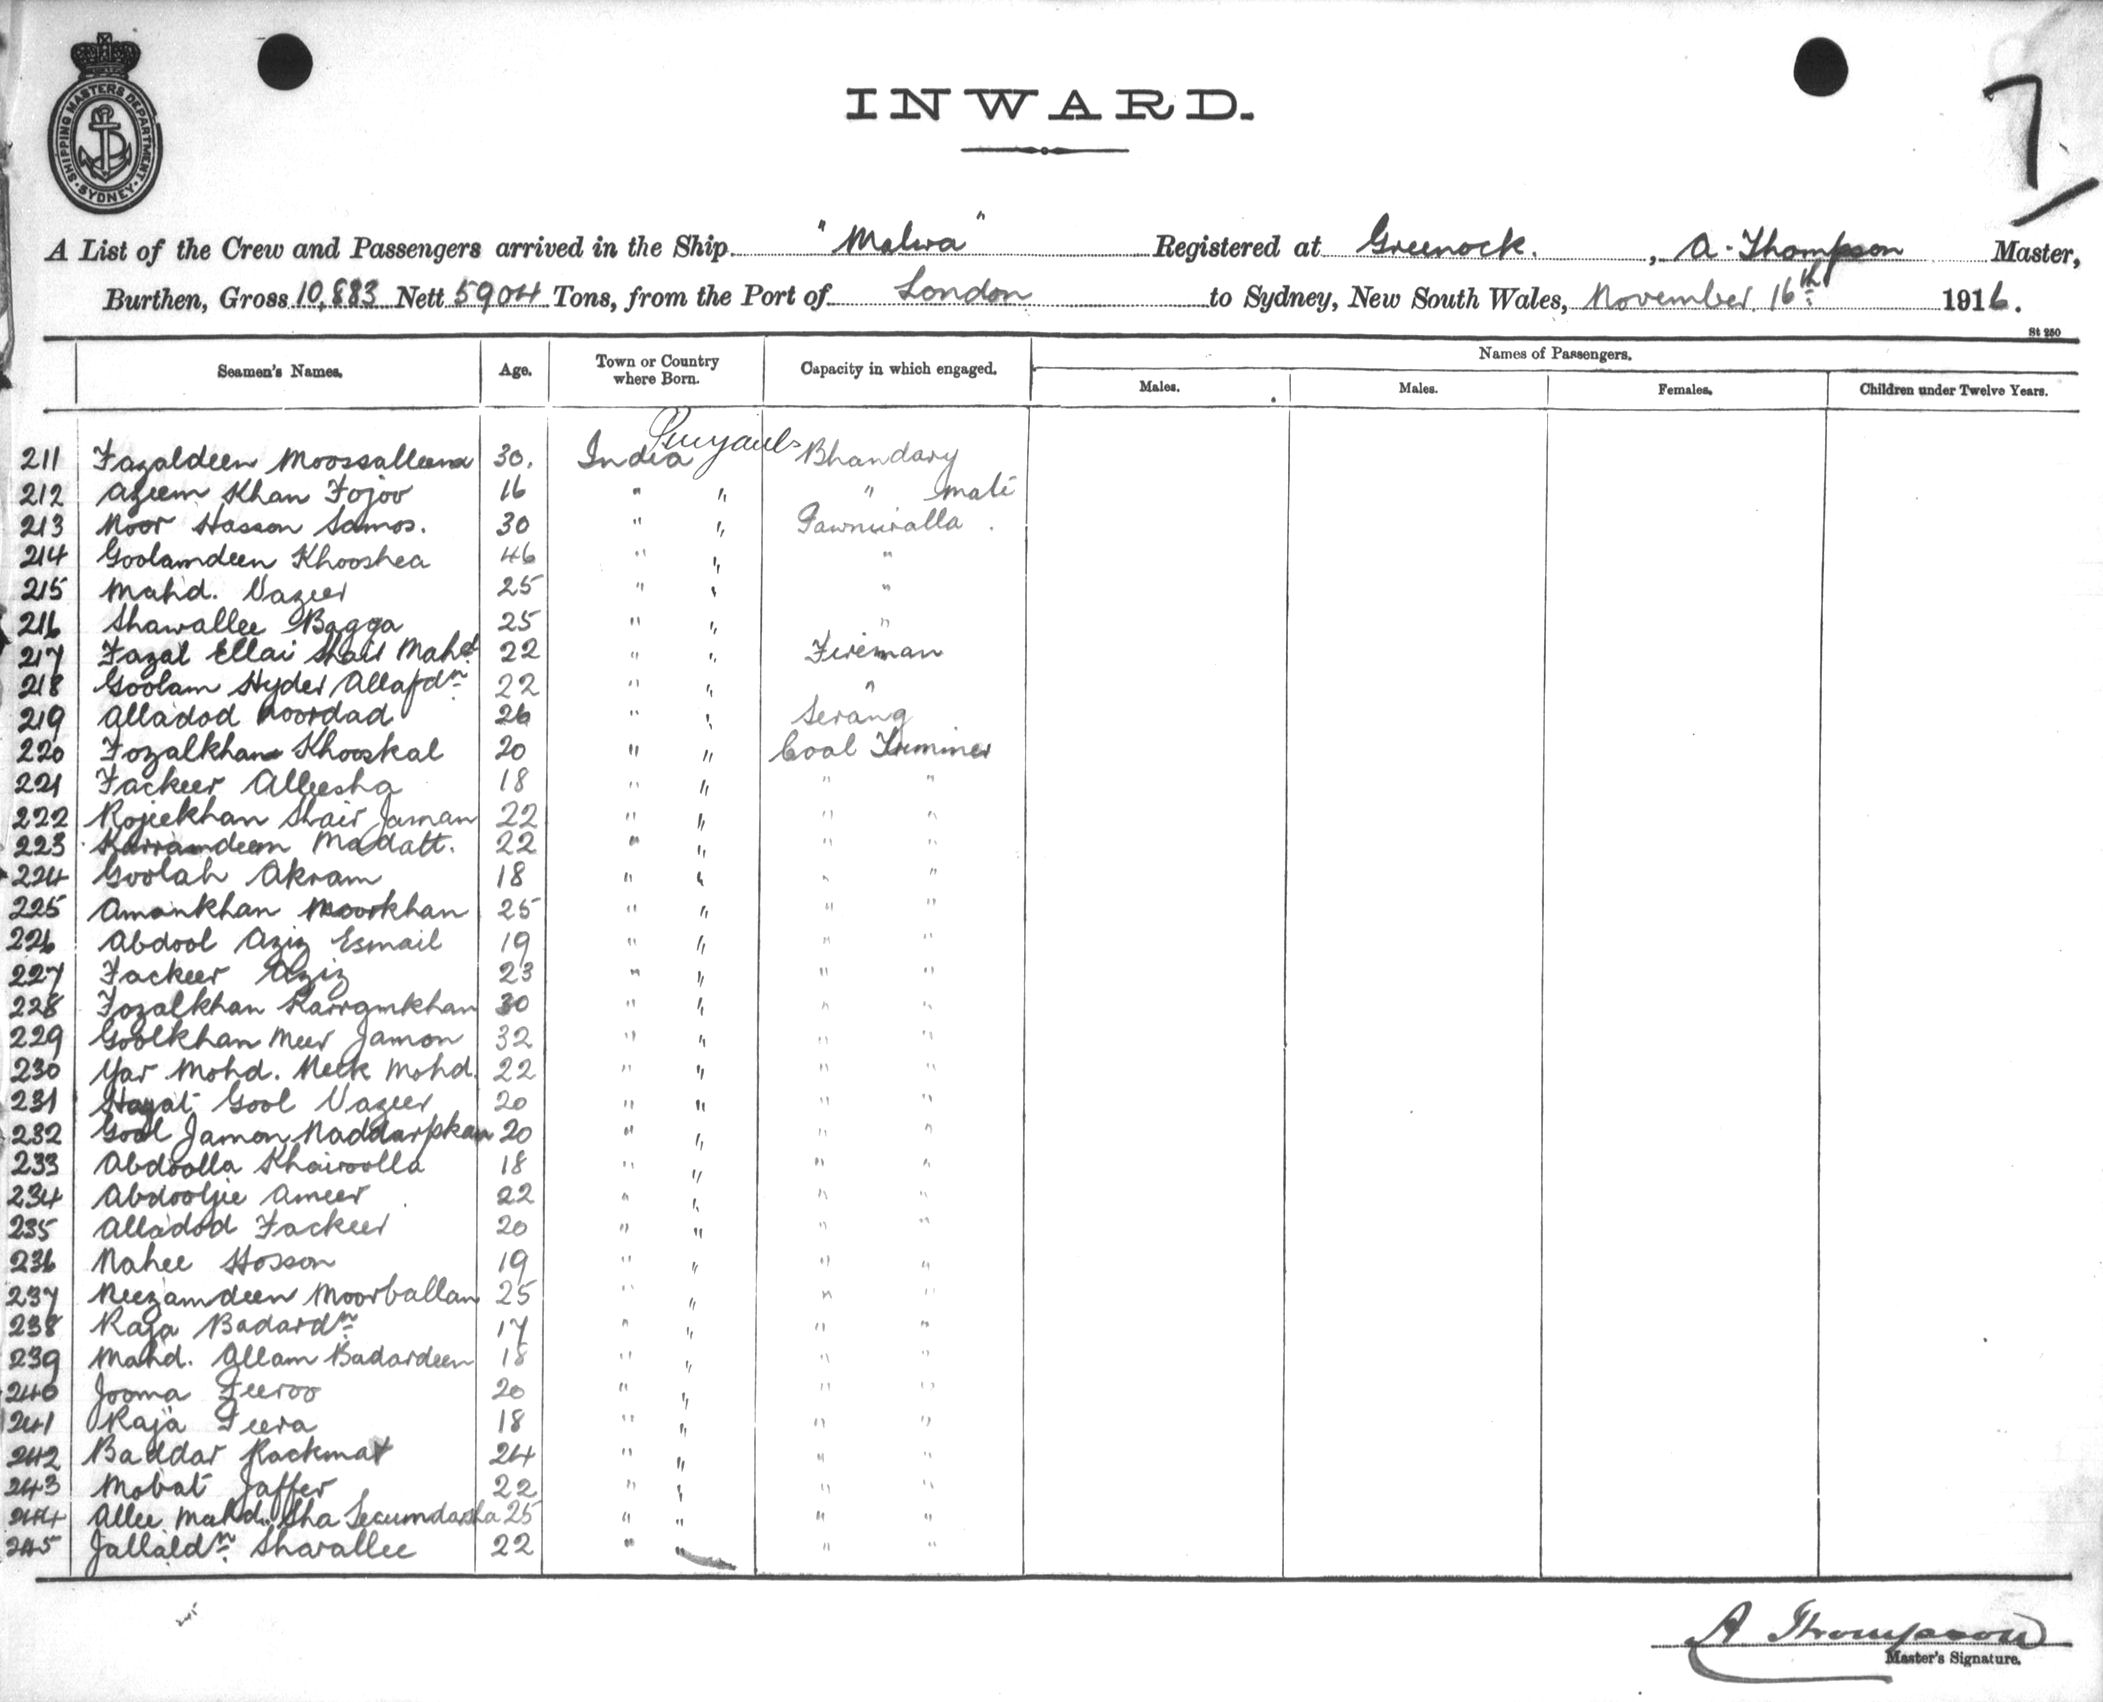 SHIPPING MASTERS DEPARTMENT · SYDNEY ·
INWARD.
7
A List of the Crew and Passengers arrived in the Ship "Malwa" Registered at Greenock. , A. Thompson Master,
Burthen, Gross 10,883 Nett 5904 Tons, from the Port of London to Sydney, New South Wales, November 16th 1916.
St 250
Seamen's Names. Age. Town or Country where Born. Capacity in which engaged. Names of Passengers.
Males. Males. Females. Children under Twelve Years.
211 Fazaldeen 30. India Bhandary
212 Azeem Khan Fojoo 16 " " " mate
213 Noor Hasson Samos. 30 " "
214 Goolamdeen Khooshea 46 " " "
215 Mahd. Vazeer 25 " " "
216 Shawallee Bagga 25 " " "
217 Fazal Ellai Shair Mahd 22 " " Fireman
218 Goolam Hyder 22 " " "
219 Alladod Noordad 26 " " Serang
220 Fozalkhan Khooskal 20 " " Coal Trimmer
221 Fackeer Alleesha 18 " " " "
222 Rojiekhan Shair Jaman 22 " " " "
223 Karramdeen Madatt. 22 " " " "
224 Goolah Akram 18 " " " "
225 Amankhan Moorkhan 25 " " " "
226 Abdool Aziz Esmail 19 " " " "
227 Fackeer Aziz 23 " " " "
228 Fozalkhan Karramkhan 30 " " " "
229 Goolkhan Meer Jamon 32 " " " "
230 Yar Mohd. Meek Mohd. 22 " " " "
231 Hayat Gool Vazeer 20 " " " "
232 Gool Jamon 20 " " " "
233 Abdoolla Khairoolla 18 " " " "
234 Abdooljie Ameer 22 " " " "
235 Alladod Fackeer 20 " " " "
236 Nahee Hosson 19 " " " "
237 Neezamdeen Moorballam 25 " " " "
238 Raja Badardn 17 " " " "
239 Mahd. Allam Badardeen 18 " " " "
240 Jooma Feeroo 20 " " " "
241 Raja Feera 18 " " " "
242 Baddar Rackmat 24 " " " "
243 Mobat Jaffer 22 " " " "
244 Allee Mahd. Sha Secumdarsha 25 " " " "
245 Jallaldn Sharallee 22 " " " "
A Thompson
Master's Signature.